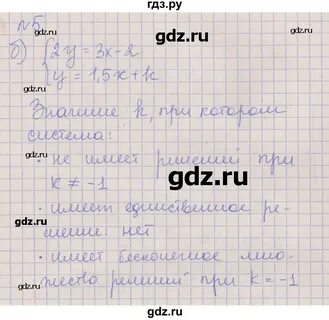 gdz.ru
№5
б) { 2y = 3x - 2
gdz.ru
y = 1,5x + k
Значение k, при котором
система:
gdz.ru
• не имеет решений при
k ≠ -1
gdz.ru
• имеет единственное ре-
шение: нет
gdz.ru
• имеет бесконечное мно-
жество решений при k = -1
gdz.ru